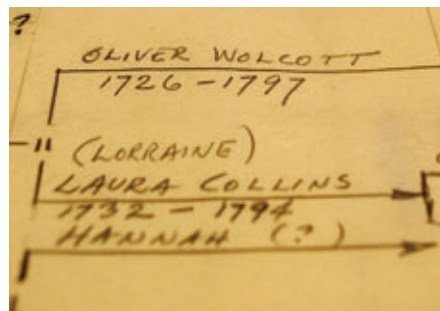 ?
OLIVER WOLCOTT
1726-1797
(LORRAINE)
LAURA COLLINS
1732 - 1794
HANNAH (?)